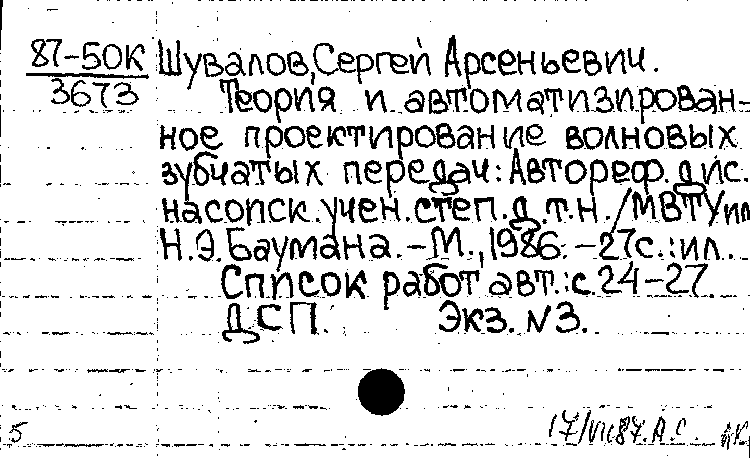 87-50К Шувалов, Сергей Арсеньевич.
3673 Теория и автоматизирован-
ное проектирование волновых
зубчатых передач: Автореф. дис.
на соиск. учен. степ. д.т.н. /МВТУ им
Н.Э. Баумана. -М., 1986. -27с.: ил.
Список работ авт.: с. 24-27.
ДСП. Экз. N3.
5 17/VII87. А.С.